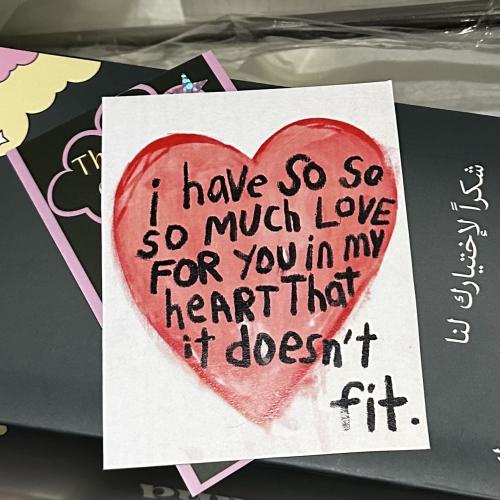 i have so so
so much love
for you in my
heart that
it doesn't
fit.
Th
شكراً لإختيارك لنا